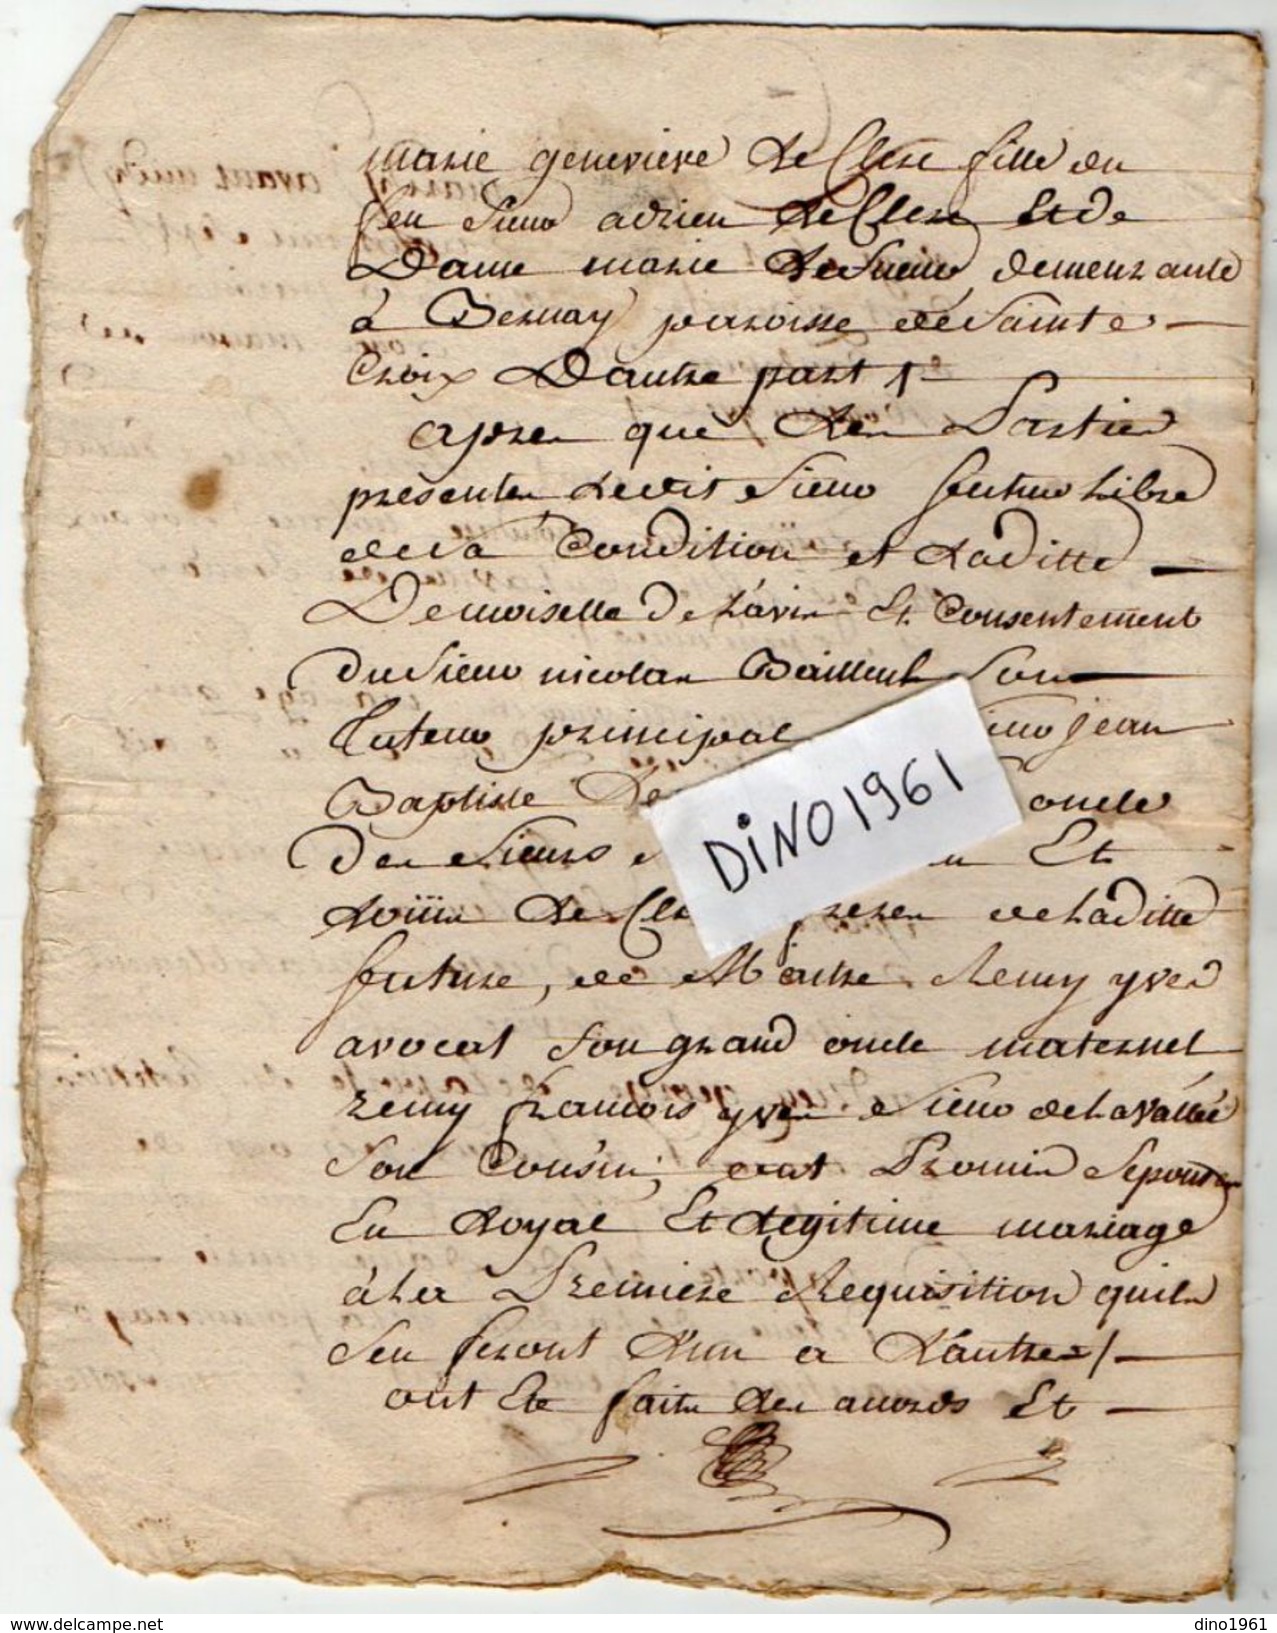 marie genevieve de Clere fille du
feu Sieur adrien de Clere Et de
Dame marie demeurante
à Bernay paroisse de Sainte
Croix Dautre part
apres que des Parties
presentes ledit Sieur futur libre
de sa Condition et Laditte
Demoiselle De Lavis Et Consentement
du Sieur nicolas Bailleul Son
tuteur principal jean
Baptiste oncle
des Sieurs Et
de de Laditte
future, de Maitre Remy yves
avocat Son grand oncle maternel
remy françois yves Sieur de la vallée
Son Cousin, ont Promis Sepouser
En Loyal Et Legitime mariage
à la Premiere Requisition quils
Sen feront Lun a Lautre
ont Ete faits des accords Et
DiNO1961
delcampe.net
dino1961